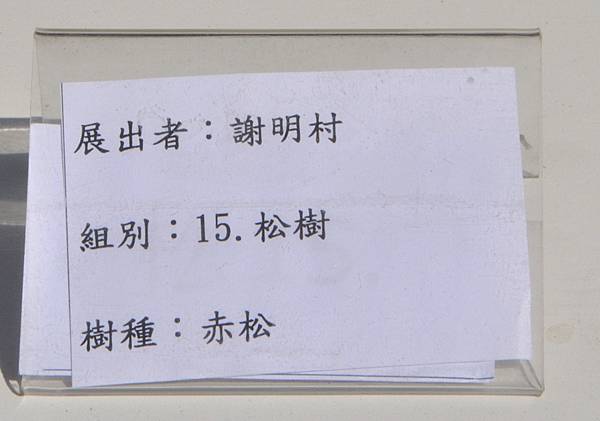 展出者：謝明村
組別：15.松樹
樹種：赤松